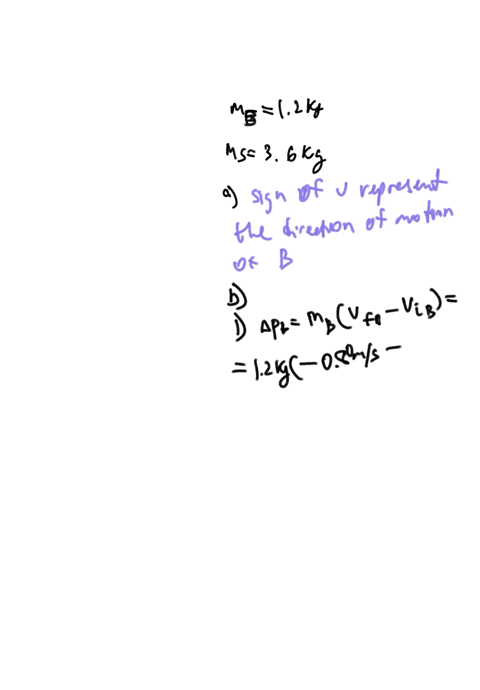 mB = 1.2 kg
Ms = 3.6 kg
a) sign of v represent
the direction of motion
of B
b)
1) ΔPb = mB (VfB - ViB) =
= 1.2 kg (- 0.80 m/s -